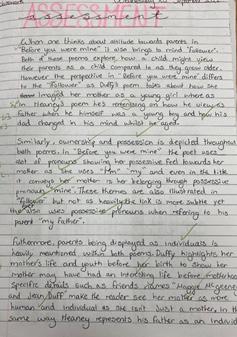 ASSESSMENT
assessment
When one thinks about attitude towards parents in
"Before you were mine" it also brings to mind "Follower".
Both of these poems explore how a child might view
their parents as a child compared to as they grow older.
However the perspective in "Before you were mine" differs
to the "Follower" as Duffy's poem talks about how she
imagined her mother as a young girl where as
in Heaney's poem he's reminiscing on how he viewed his
Father when he himself was a young boy and how his
dad changed in his mind whilst he aged.
Similarly, ownership and possession is depicted throughout
both poems. In "Before you were mine" the poet uses
alot of pronouns showing her possessive feel towards her
mother as she uses "my" and even in the title
it conveys her mother is her belonging through possessive
pronouns "mine". These themes are also illustrated in
"Follower" but not as heavily the link is more subtle yet
also uses possessive pronouns when referring to his
parent "my Father".
Futhermore, parents being displayed as individuals is
heavily mentioned within both poems. Duffy highlights her
mother's life and youth before her birth to show her
mother may have had an interesting life before motherhood
Specific details such as friends names "Maggie McGeeney
and Jean Duff" make the reader see her mother as more
human and individual as she isn't just a mother. In the
same way Heaney represents his father as an individ